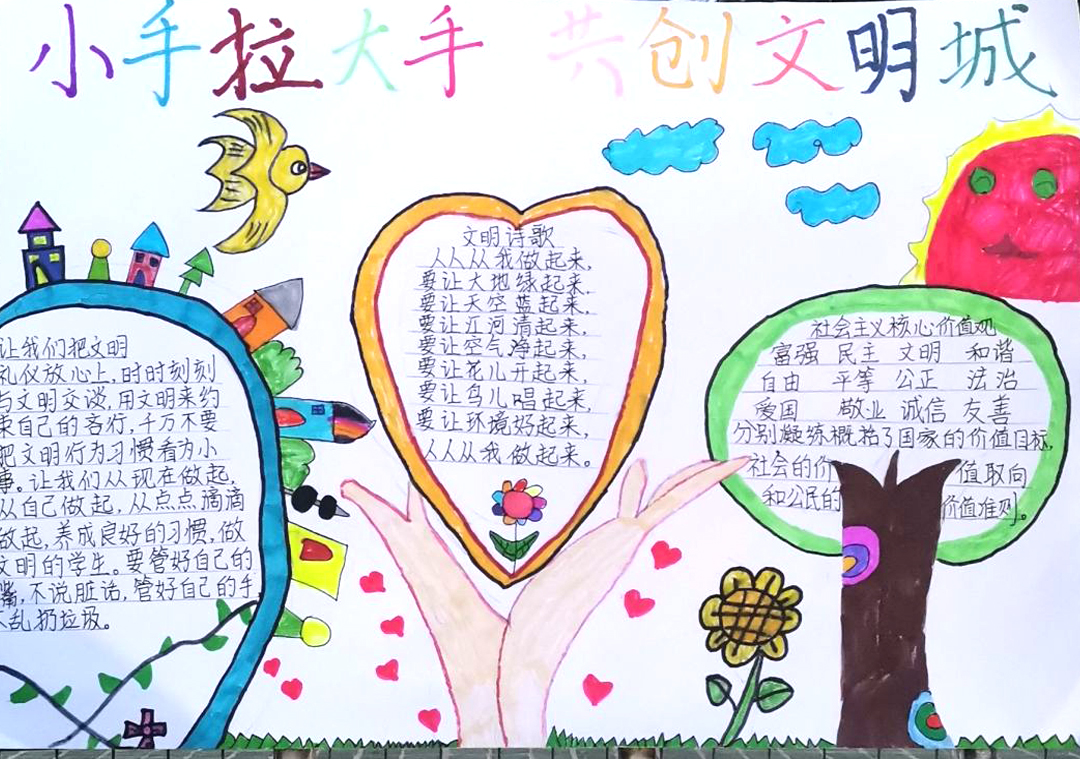 小手拉大手 共创文明城
让我们把文明
礼仪放心上,时时刻刻
与文明交谈,用文明来约
束自己的言行,千万不要
把文明行为习惯看为小
事。让我们从现在做起,
从自己做起,从点点滴滴
做起,养成良好的习惯,做
文明的学生。要管好自己的
嘴,不说脏话,管好自己的手,
不乱扔垃圾。
文明诗歌
人人从我做起来,
要让大地绿起来,
要让天空蓝起来,
要让江河清起来,
要让空气净起来,
要让花儿开起来,
要让鸟儿唱起来,
要让环境好起来,
人人从我做起来。
社会主义核心价值观
富强 民主 文明 和谐
自由 平等 公正 法治
爱国 敬业 诚信 友善
分别凝练概括了国家的价值目标,
社会的价 值取向
和公民的 价值准则。